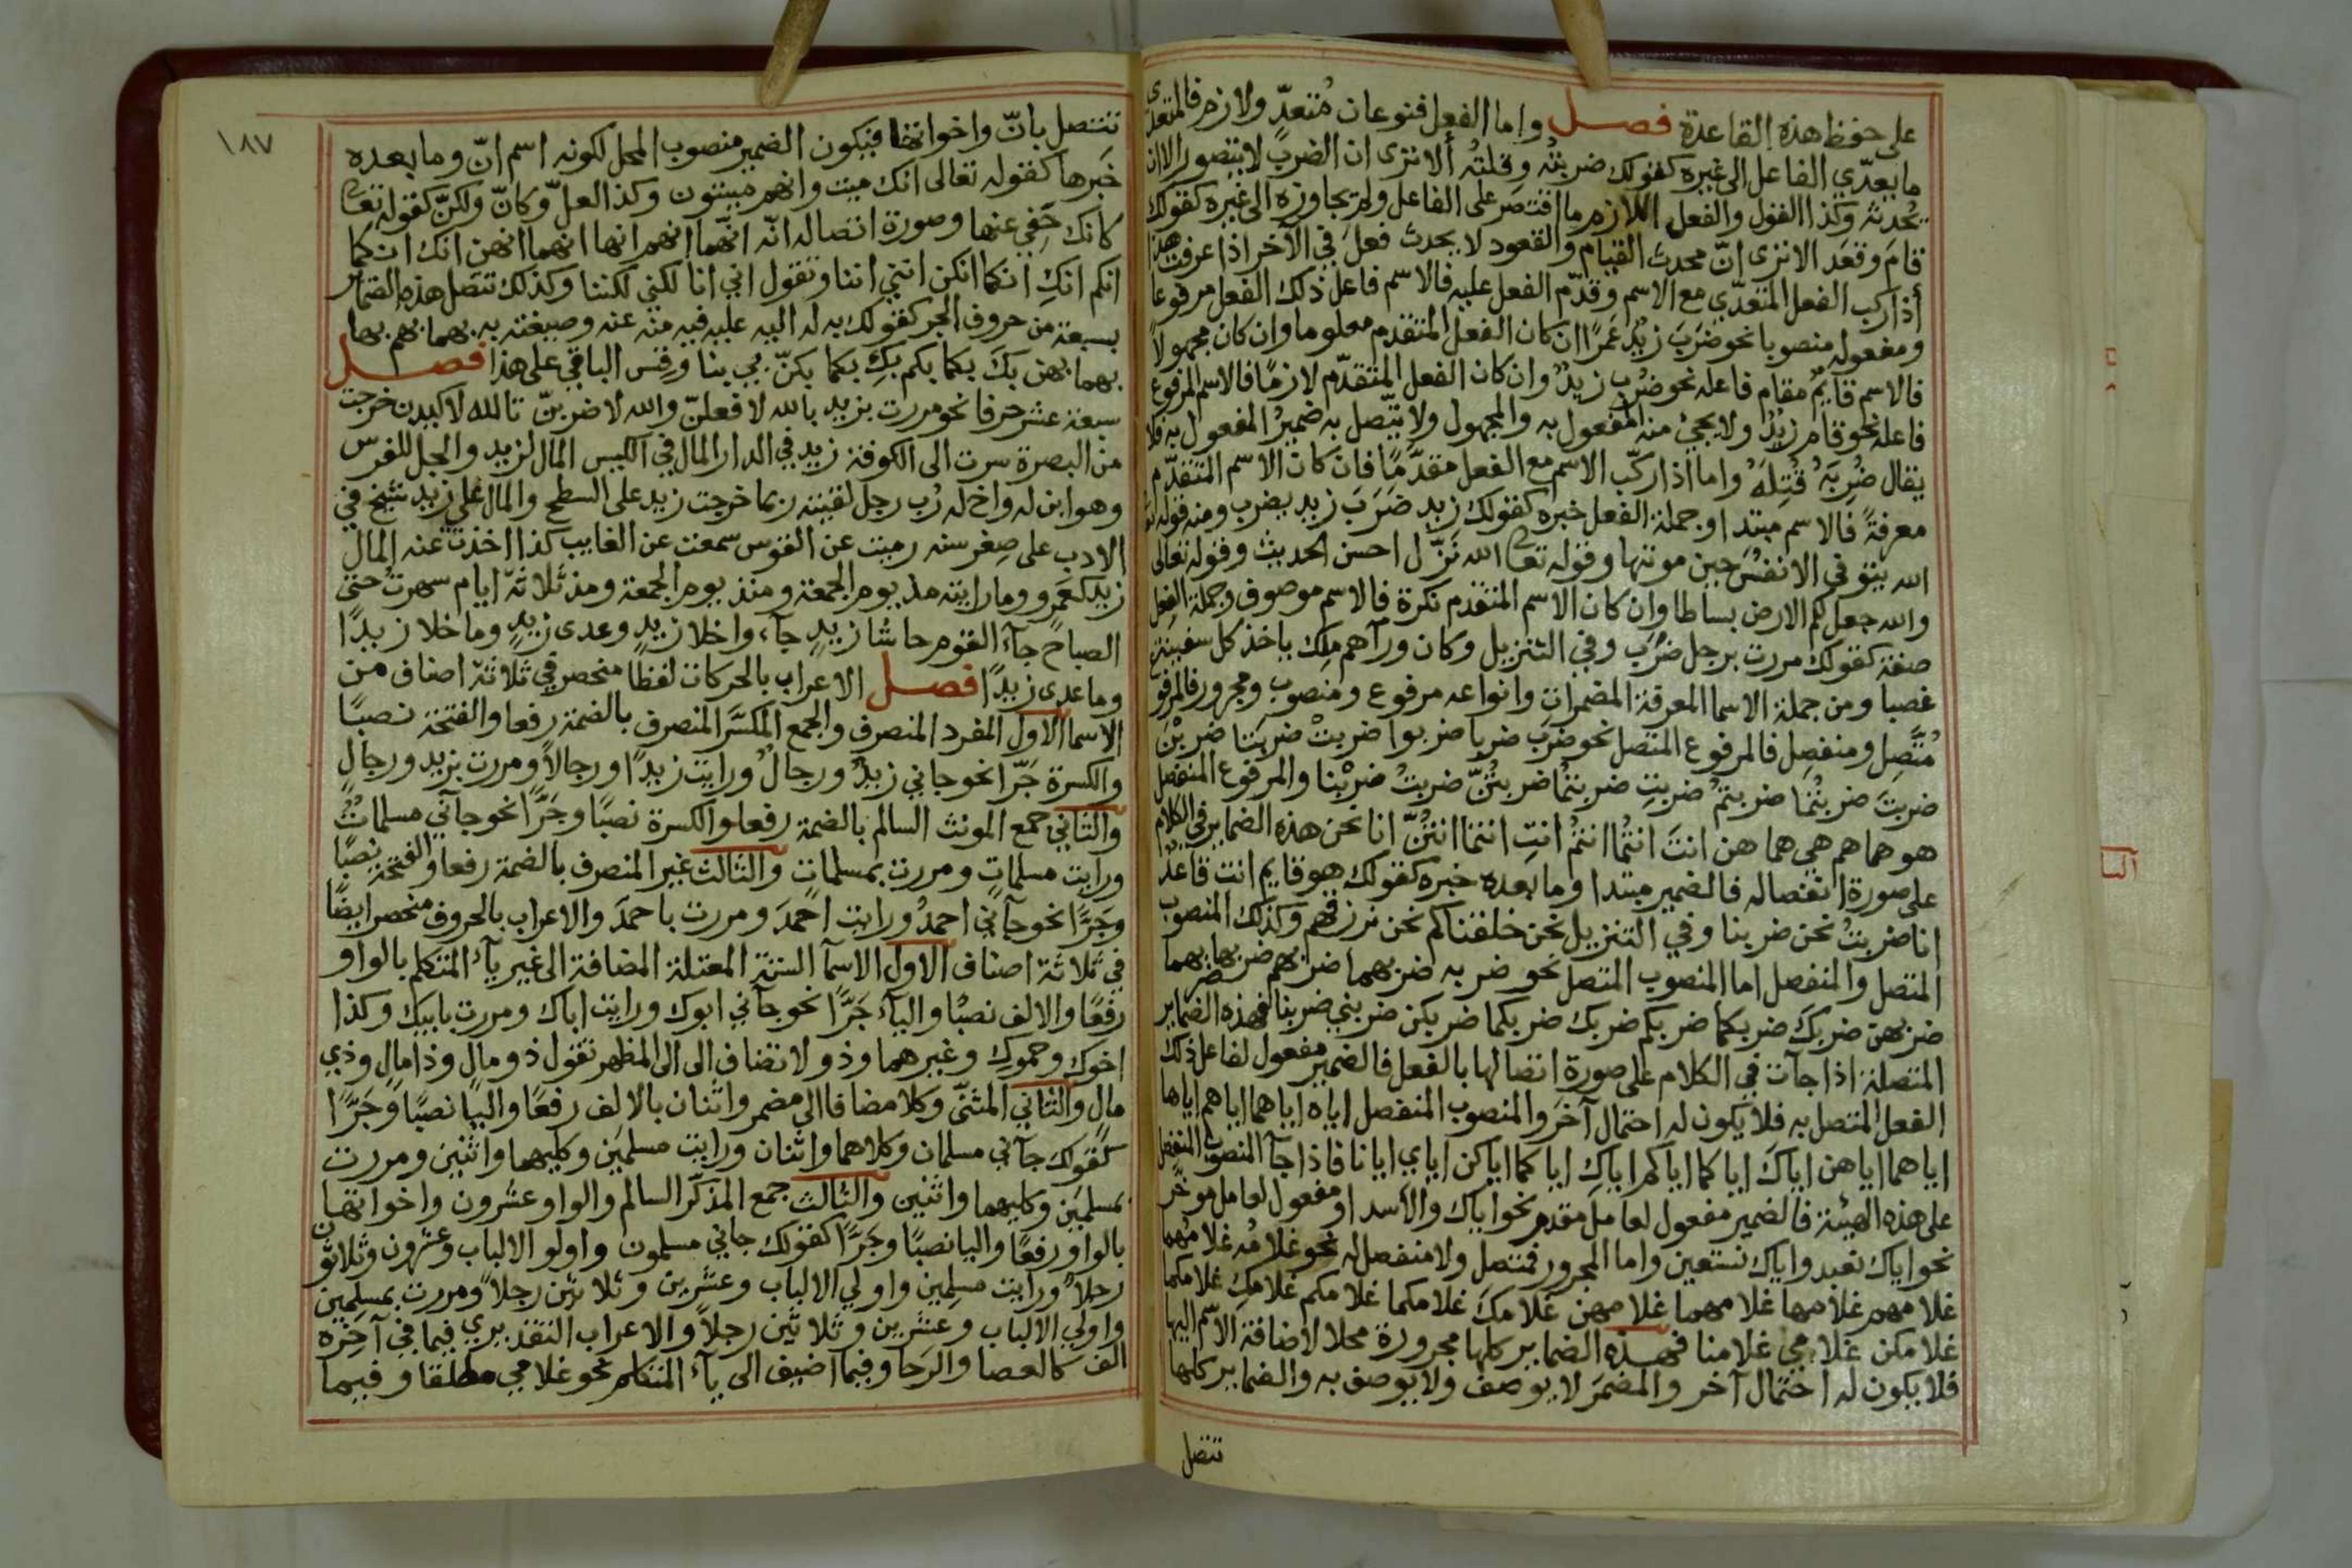 على حفظ هذه القاعدة فصل واما الفعل فنوعان مُتعدٍّ ولازم فالمتعدى
ما يعدّي الفاعل الى غيره كقولك ضربتُه وقتلتُه ألا ترى ان الضربَ لا يتصور الا ان
يُحدثه وكذا القول والفعل اللازم ما اقتصر على الفاعل ولم يجاوزه الى غيره كقولك
قامَ وقعَد الا ترى انّ محدث القيام والقعود لا يحدث فعلَ في الآخر اذا عرفت هذا
أذا ركب الفعل المتعدّي مع الاسم وقدّم الفعل عليه فالاسم فاعل ذلك الفعل مرفوعا
ومفعوله منصوبا نحو ضَرَبَ زيدٌ عَمرًا ان كان الفعل المتقدم معلوما وان كان مجهولاً
فالاسم قايمٌ مقام فاعله نحو ضُرِب زيدٌ وان كان الفعل المتقدّم لازمًا فالاسم المرفوع
فاعله نحو قام زيدٌ ولا يجيئ منه المفعول به والمجهول ولا يتّصل به ضميرُ المفعول به فلا
يقال ضُرِبَهُ قُتِلَهُ واما اذا ركّب الاسم مع الفعل مقدَّمًا فان كان الاسم المتقدّم
معرفةً فالاسم مبتدا وجملة الفعل خبره كقولك زيد ضَرَبَ زيد يضرب ومنه قوله
الله يتوفى الانفسَ حين موتها وقوله تعا الله نَزّل احسن الحديث وقوله تعالى
والله جعل لكم الارض بساطا وان كان الاسم المتقدم نكرة فالاسم موصوف وجملة الفعل
صفة كقولك مررت برجل ضرَب وفي التنزيل وكان ورآهم ملك ياخذ كل سفينة
غصبا ومن جملة الاسما المعرفة المضمرات وانواعه مرفوع ومنصوب ومجرور فالمرفو
مُتَّصِل ومنفصِل فالمرفوع المتصل نحو ضرَبَ ضربا ضربوا ضربتْ ضربَتا ضربْنَ
ضربتَ ضربتُما ضربتمُ ضربتِ ضربتمُا ضربتُنّ ضربتُ ضربْنا والمرفوع المنفصل
هو هما هم هي هما هن انتَ انتُما انتمُ انتِ انتما انتُنّ انا نحن هذه الضماير في الكلام
على صورة انفصاله فالضمير مبتدا وما بعده خبره كقولك هو قايم انت قاعدٌ
انا ضربتُ نحن ضربنا وفي التنزيل نحن خلقناكم نحن نرزقهم وكذلك المنصوب
المتصل والمنفصل اما المنصوب المتصل نحو ضربه ضربهما ضربهم ضربها ضربهما
ضربهن ضربكَ ضربكما ضربكم ضربك ضربكما ضربكن ضربني ضربنا فهذه الضماير
المتصلة اذا جآت في الكلام على صورة اتصالها بالفعل فالضمير مفعول لفاعل ذلك
الفعل المتصل به فلا يكون له احتمال آخرَ والمنصوب المنفصل اياه اياهما اياهم اياها
اياهما اياهن اياكَ اياكما اياكم اياكِ اياكما اياكن اياي ايانا فاذا جآ المنصوب المنفصل
على هذه الهيئة فالضمير مفعول لعامل مقدم نحو اياك والاسد او مفعول لعامل موخر
نحو اياك نعبد واياك نستعين واما المجرور فمتصل ولا منفصل له نحو غلامُه غلامُهما
غلامهم غلامها غلامهما غلامهن غلامكَ غلامكما غلامكم غلامكِ غلامكما
غلامكن غلامي غلامنا فهذه الضماير كلها مجرورة محلا لاضافة الاسم اليها
فلا يكون له احتمال آخر والمضمَر لا يوصف ولا يوصف به والضماير كلها
تتصل
١٨٧
تتصل بانّ واخواتها فيكون الضمير منصوب المحل لكونه اسم انّ وما بعده
خبَرها كقوله تعالى انك ميت وانهم ميتون وكذا لعلّ وكانّ ولكنّ كقوله تعا
كانك حَفِي عنها وصورة اتصاله انّه انّهما انهم انها انهما انهن انك انكما
انكم انكِ انكما انكن انني اننا وتقول اني انا لكني لكننا وكذلك تتصل هذه الضماير
بسبعة من حروف الجر كقولك به له اليه عليه فيه منه عنه وصيغته به بهما بهم بها
بهما بهن بكَ بكما بكم بكِ بكما بكنّ بي بنا وقس الباقي على هذا فصل
سبعة عشر حرفا نحو مررت بزيد بالله لافعلنّ والله لاضربنّ تالله لاكيدن خرجت
من البصرة سرت الى الكوفة زيد في الدار المال في الكيس المال لزيد والجل للفرس
وهو ابن له واخ له رُب رجل لقيته ربما خرجت زيد على السطح والمال على زيد شيخ في
الادب على صِغر سنه رميت عن القوس سمعت عن الغايب كذا اخذت عنه المال
زيد كعَمرو وما رايته مذ يوم الجمعة ومنذ يوم الجمعة ومذ ثلاثة ايام سهرت حتى
الصباحِ جآءَ القوم حاشا زيدٍ جآء واخلا زيدٍ وعدى زيدٍ وما خلا زيدًا
وما عدى زيدًا فصل الاعراب بالحركات لفظًا منحصر في ثلاثة اصناف من
الاسما الاول المفرد المنصرف والجمع المكسَّر المنصرف بالضمة رفعا والفتحة نصبًا
والكسرة جَرّا نحو جاني زيدٌ ورجالٌ ورايت زيدًا ورجالاً ومررت بزيد ورجالٍ
والثاني جمع المونث السالم بالضمة رفعا والكسرة نصبًا وجَرًّا نحو جآني مسلماتٌ
ورايت مسلماتٍ ومررت بمسلماتٍ والثالث غير المنصرف بالضمة رفعا والفتحة نصبًا
وجَرًّا نحو جآني احمدُ ورايت احمَدَ ومررت باحمدَ والاعراب بالحروف منحصر ايضًا
في ثلاثة اصناف الاول الاسمآ الستة المعتلة المضافة الى غير يآء المتكلم بالواو
رفعًا والالف نصبًا واليآء جَرًّا نحو جآني ابوك ورايت اباك ومررت بابيك وكذا
اخوك وحموكِ وغيرهما وذو لا تضاف الى الى المظهر تقول ذو مالٍ وذا مالٍ وذي
مالٍ والثاني المثنّى وكلا مضافا الى مضمر واثنان بالالف رفعًا واليا نصبًا وجَرًّا
كقولك جآني مسلمان وكلاهما واثنان ورايت مسلمَين وكليهما واثنين ومررت
بمسلمَين وكليهما واثنين والثالث جمع المذكّر السالم والواو عشرون واخواتها
بالواو رفعًا واليا نصبًا وجَرًّا كقولك جاني مسلمون واولو الالباب وعشرون وثلاثون
رجلاً ورايت مسلِمين واولي الالباب وعشرين وثلاثين رجلاً ومررت بمسلمين
واولي الالباب وعشرين وثلاثين رجلاً والاعراب التقديري فيما في آخِره
الف كالعصا والرَحا وفيما اضيف الى يآء المتكلم نحو غلامي مطلقا وفيما